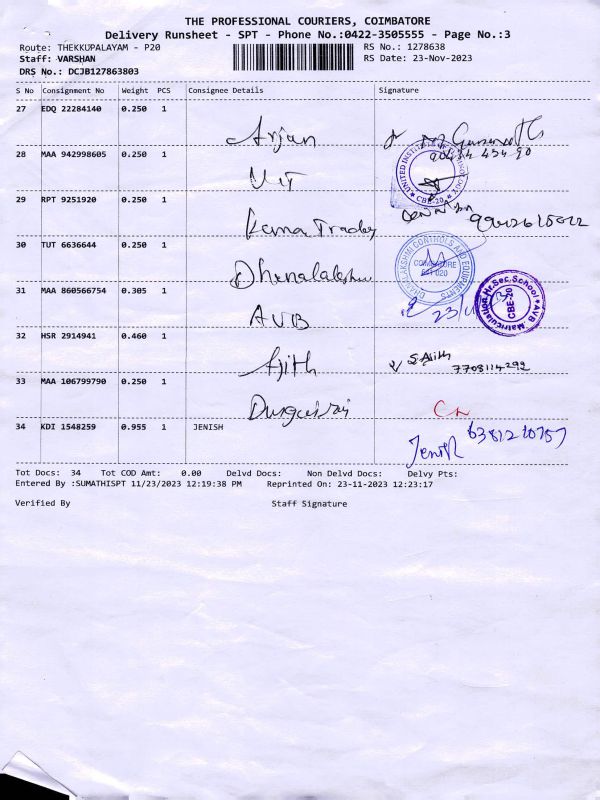 THE PROFESSIONAL COURIERS, COIMBATORE
Delivery Runsheet - SPT - Phone No.:0422-3505555 - Page No.:3
Route: THEKKUPALAYAM - P20
RS No.: 1278638
Staff: VARSHAN
RS Date: 23-Nov-2023
DRS No.: DCJB127863803
S No Consignment No Weight PCS Consignee Details Signature
27 EDQ 22284140 0.250 1
Arjan
28 MAA 942998605 0.250 1
UIT
29 RPT 9251920 0.250 1
30 TUT 6636644 0.250 1
31 MAA 860566754 0.305 1
AVB
23/11
32 HSR 2914941 0.460 1
Ajith S.Ajith
7708114292
33 MAA 106799790 0.250 1
34 KDI 1548259 0.955 1 JENISH
Jenish
Tot Docs: 34 Tot COD Amt: 0.00 Delvd Docs: Non Delvd Docs: Delvy Pts:
Entered By :SUMATHISPT 11/23/2023 12:19:38 PM Reprinted On: 23-11-2023 12:23:17
Verified By Staff Signature